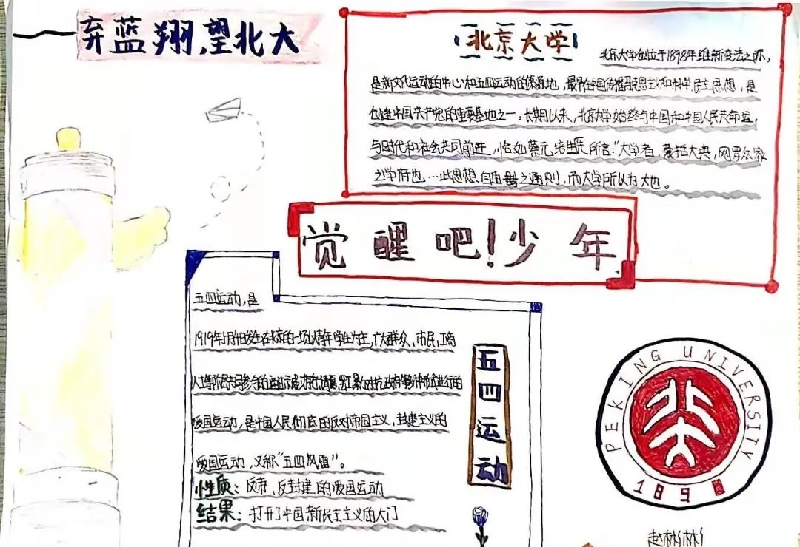 弃蓝翔,望北大
北京大学
北京大学创立于1898年维新变法之际,
是新文化运动的中心和五四运动的策源地,最早在中国传播马克思主义和科学民主思想,是
创建中国共产党的重要基地之一,长期以来,北京大学始终与中国共和国人民共命运,
与时代和社会共同前进,恰如蔡元培先生所言"大学者,囊括大典,网罗众家
之学府也…此思想自由之通则,而大学所以为大也。
觉醒吧!少年
五四运动,是
1919年5月4日发生在北京的一场以青年学生为主,广大群众,市民,工商
爱国运动,是中国人民彻底的反对帝国主义,封建主义的
爱国运动,又称"五四风雷"。
性质:反帝,反封建的爱国运动
结果:打开了中国新民主主义的大门
五四运动
PEKING UNIVERSITY
北大
189